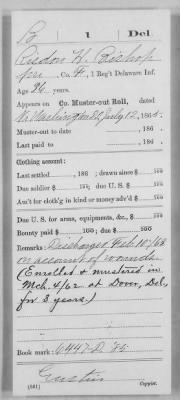 B 1 Del
Risdon H. Bishop
Pri, Co. F, 1 Reg't Delaware Inf.
Age 26 years.
Appears on Co. Muster-out Roll, dated
Nr Washington D.C. July 12, 1865.
Muster-out to date , 186 .
Last paid to , 186 .
Clothing account:
Last settled , 186 ; drawn since $ 100
Due soldier $ 100; due U. S. $ 100
Am't for cloth'g in kind or money adv'd $ 100
Due U. S. for arms, equipments, &c., $ 100
Bounty paid $ 100; due $ 100
Remarks: Discharged Feb 10/63
on account of wounds.
(Enrolled & mustered in
Mch. 4/62 at Dover, Del,
for 3 years.)
Book mark: 6447-D-85
(861) Copyist.